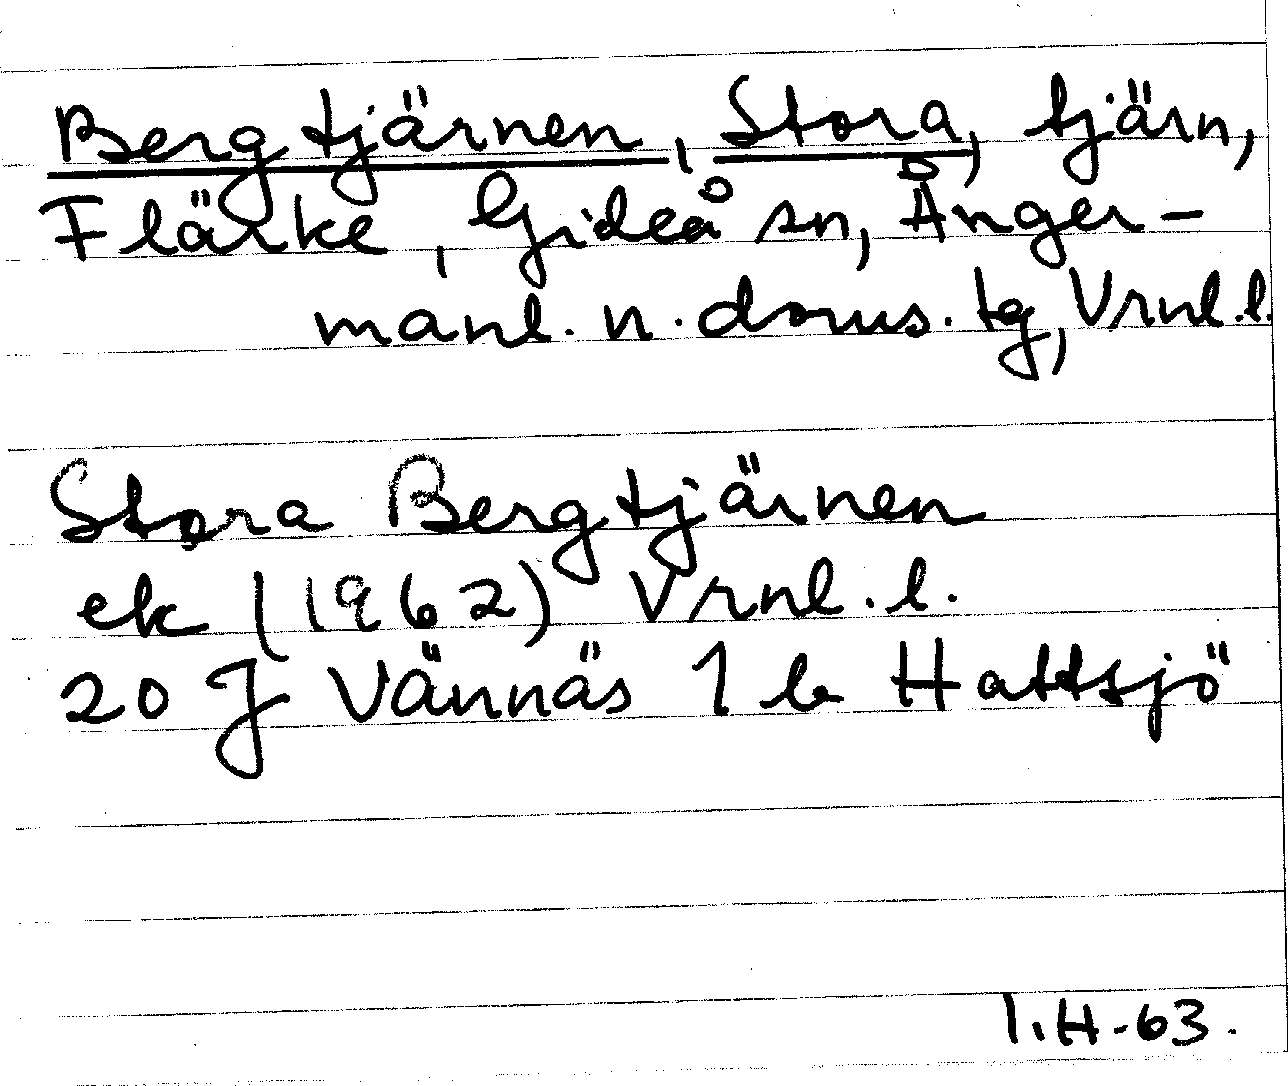 Bergtjärnen, Stora, tjärn,
Flärke, Gideå sn, Ånger-
manl. n. doms. tg, Vrnl.l.
Stora Bergtjärnen
ek (1962) Vrnl.l.
20 J Vännäs 1 b Hattsjö
I.H-63.